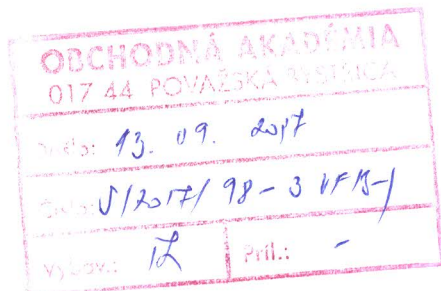 OBCHODNÁ AKADÉMIA
017 44 POVAŽSKÁ BYSTRICA
Došlo: 13. 09. 2017
Číslo: 2017/98-3
Vybav.: Príl.: -